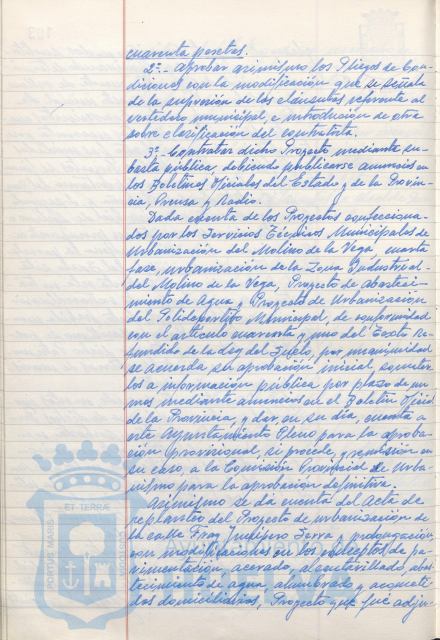 cuarenta pesetas.
2º.- Aprobar asimismo los Pliegos de Con-
diciones con la modificación que se señala
de la supresión de las cláusulas referente al
vertedero municipal, e introducción de otra
sobre clasificación del contratista.
3º.- Contratar dicho Proyecto mediante su-
basta pública, debiendo publicarse anuncios en
los Boletines Oficiales del Estado y de la Provin-
cia, Prensa y Radio.
Dada cuenta de los Proyectos confecciona-
dos por los Servicios Técnicos Municipales de
Urbanización del Molino de la Vega, cuarta
fase, urbanización de la Zona Industrial
del Molino de la Vega, Proyecto de abasteci-
miento de Agua y Proyecto de Urbanización
del Polideportivo Municipal, de conformidad
con el artículo cuarenta y uno del Texto Re-
fundido de la Ley del Suelo, por unanimidad
se acuerda su aprobación inicial, someter
los a información pública por plazo de un
mes mediante anuncios en el Boletín Oficial
de la Provincia, y dar, en su día, cuenta a
este Ayuntamiento Pleno para la aproba-
ción provisional, si procede, y remisión en
su caso, a la Comisión Provincial de Urba-
nismo para la aprobación definitiva.
Asimismo se da cuenta del Acta de
replanteo del Proyecto de urbanización de
la calle Fray Junípero Serra y prolongación
con modificaciones en los conceptos de pa-
vimentación, acerado, alcantarillado, abas-
tecimiento de agua, alumbrado y acometi
das domiciliarias, Proyecto que fué adju-
ET TERRÆ
PORTUS MARIS
CUSTODIA